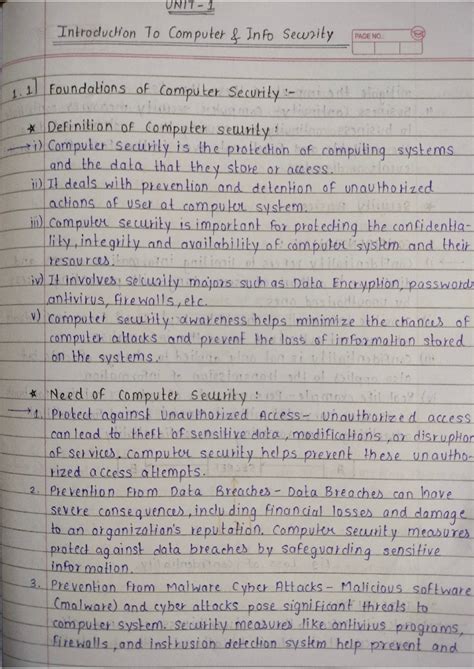 UNIT-1
Introduction To Computer & Info Security
PAGE NO.:
1.1] Foundations of Computer Security :-
★ Definition of Computer security :
→ i) Computer Security is the protection of computing systems
and the data that they store or access.
ii) It deals with prevention and detention of unauthorized
actions of user at computer system.
iii) Computer security is important for protecting the confidentia-
lity, integrity and availability of computer system and their
resources.
iv) It involves security majors such as Data Encryption, passwords
antivirus, firewalls, etc.
v) Computer security awareness helps minimize the chances of
computer attacks and prevent the loss of information stored
on the systems.
★ Need of Computer Security :
→ 1. Protect against Unauthorized Access - Unauthorized access
can lead to theft of sensitive data, modifications, or disruption
of services. Computer security helps prevent these unautho-
rized access attempts.
2. Prevention from Data Breaches - Data Breaches can have
severe consequences, including financial losses and damage
to an organization's reputation. Computer security measures
protect against data breaches by safeguarding sensitive
information.
3. Prevention from Malware Cyber Attacks - Malicious software
(malware) and cyber attacks pose significant threats to
computer system. Security measures like antivirus programs,
firewalls, and instrusion detection system help prevent and